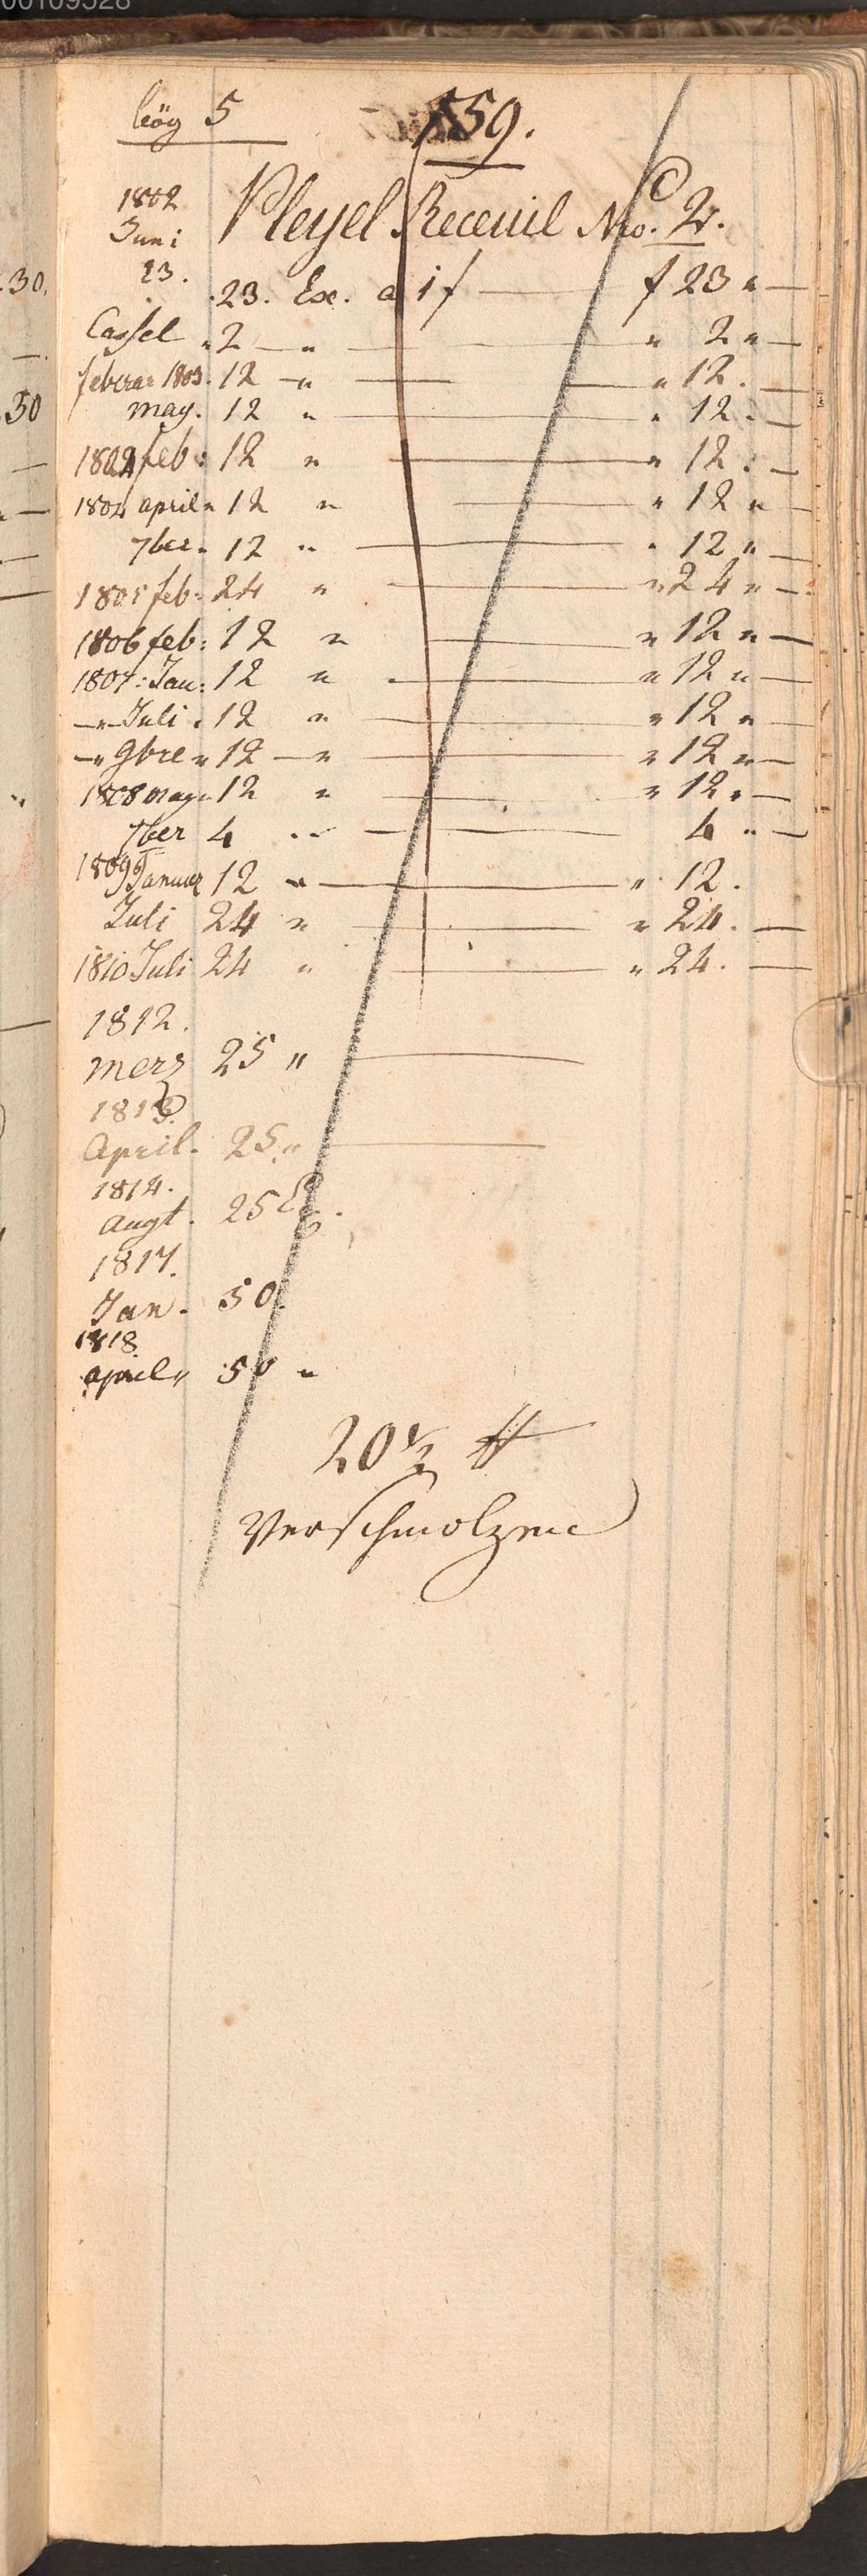 00109528
bög 5
559.
1802
Juni
23.
Pleyel Receuil No. 2.
23. Ex. a 1 f f 23 " —
Cassel " 2 — " — " 2 " —
febrar 1803. 12 — " — " 12. —
may. 12 " — " 12. —
feb: 12 " — " 12. —
1804 april " 12 " — " 12 " —
7ber. 12 " — " 12 " —
1805 feb: 24 " — " 24 " —
1806 feb: 12 " — " 12 " —
1807: Jan: 12 " — " 12 " —
— " Juli. 12 " — " 12 " —
— " 9bre " 12 — " — " 12 " —
1808 may " 12 " — " 12 " —
7ber 4 " — 4 " —
1809 Januar 12 " — " 12.
Juli 24 " — " 24. —
1810 Juli 24 " — " 24. —
1812.
merz 25 " —
1813.
April. 25 " —
1814.
augt. 25 Ex.
1817.
Jan. 50.
1818
april " 50 "
20 1/2 ℔
Verschmolzen
30.
30